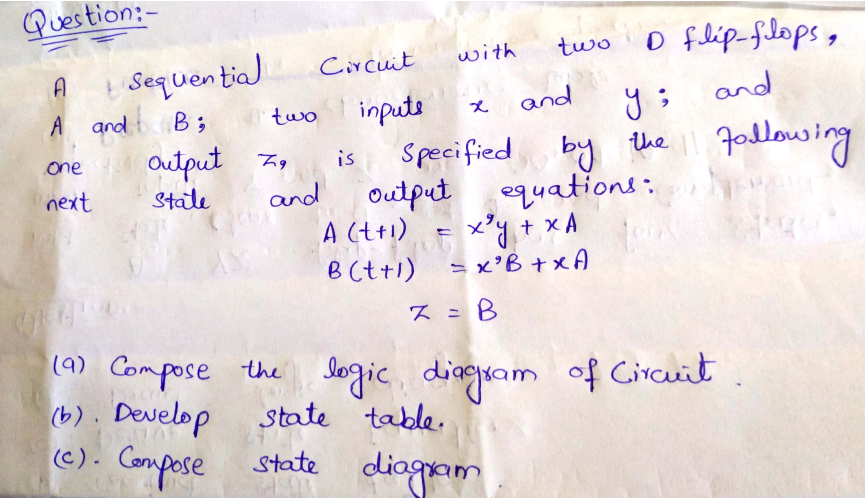 Question:-
A Sequential Circuit with two D flip-flops,
A and B; two inputs x and y; and
one output z, is specified by the following
next state and output equations:
A(t+1) = x'y + xA
B(t+1) = x'B + xA
z = B
(a) Compose the logic diagram of Circuit.
(b). Develop state table.
(c). Compose state diagram